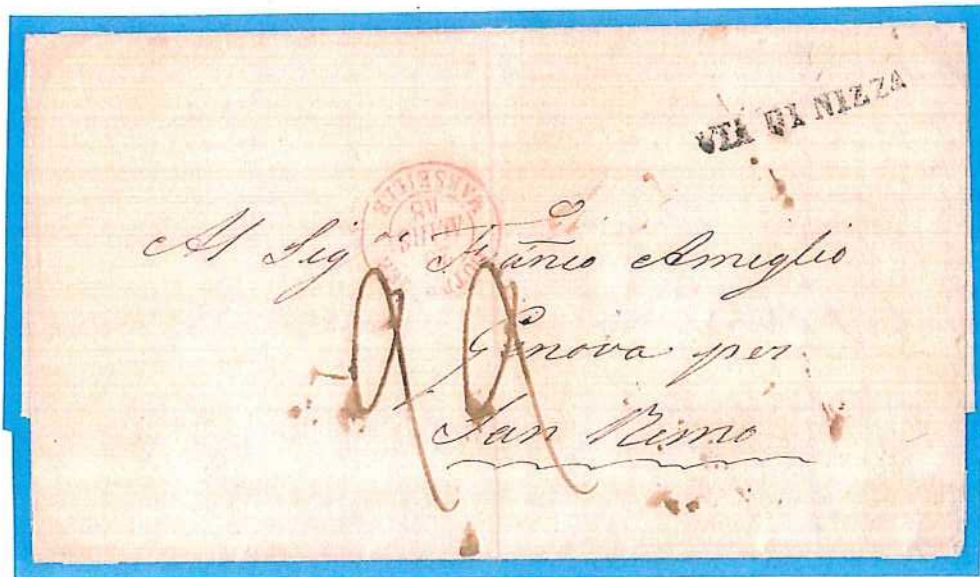 VIA DI NIZZA
MARSEILLE
48
Al Sig.
Amiglio
Genova per
San Remo